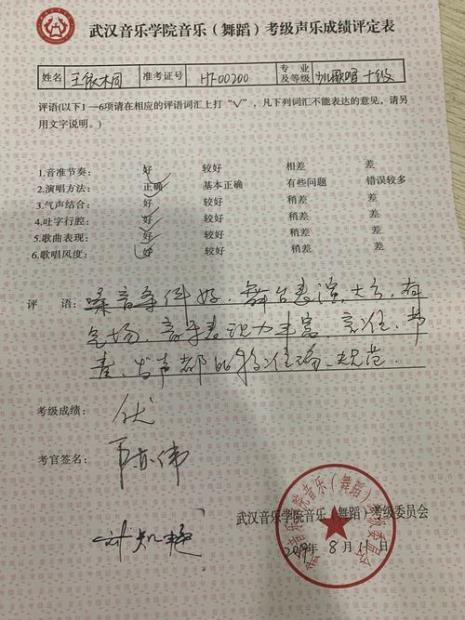 武汉音乐学院音乐（舞蹈）考级声乐成绩评定表
姓名 王 准考证号 HF00200 专业及等级 十级
评语(以下1—6项请在相应的评语词汇上打“√”，凡下列词汇不能表达的意见，请另
用文字说明。)
1.音准节奏： 好 较好 相差 差
2.演唱方法： 正确 基本正确 有些问题 错误较多
3.气声结合： 好 较好 稍差 差
4.吐字行腔： 好 较好 稍差 差
5.歌曲表现： 好 较好 稍差 差
6.歌唱风度： 好 较好 稍差 差
评 语： 嗓音条件好、舞台表演大方、有
气场、音乐表现力丰富、音准、节
奏、发声都比较准确、规范.
考级成绩： 优
考官签名：
武汉音乐学院音乐（舞蹈）考级委员会
2019年 8月 11日